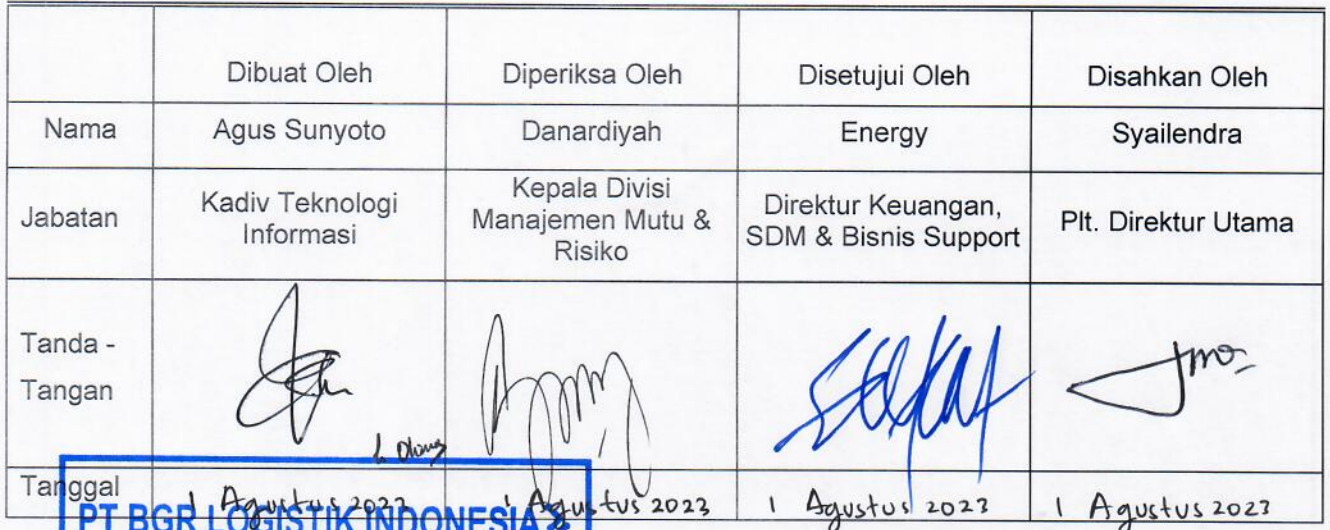 Dibuat Oleh Diperiksa Oleh Disetujui Oleh Disahkan Oleh
Nama Agus Sunyoto Danardiyah Energy Syailendra
Jabatan Kadiv Teknologi Informasi Kepala Divisi Manajemen Mutu & Risiko Direktur Keuangan, SDM & Bisnis Support Plt. Direktur Utama
Tanda -
Tangan
Tanggal 1 Agustus 2023 1 Agustus 2023 1 Agustus 2023 1 Agustus 2023
PT BGR LOGISTIK INDONESIA